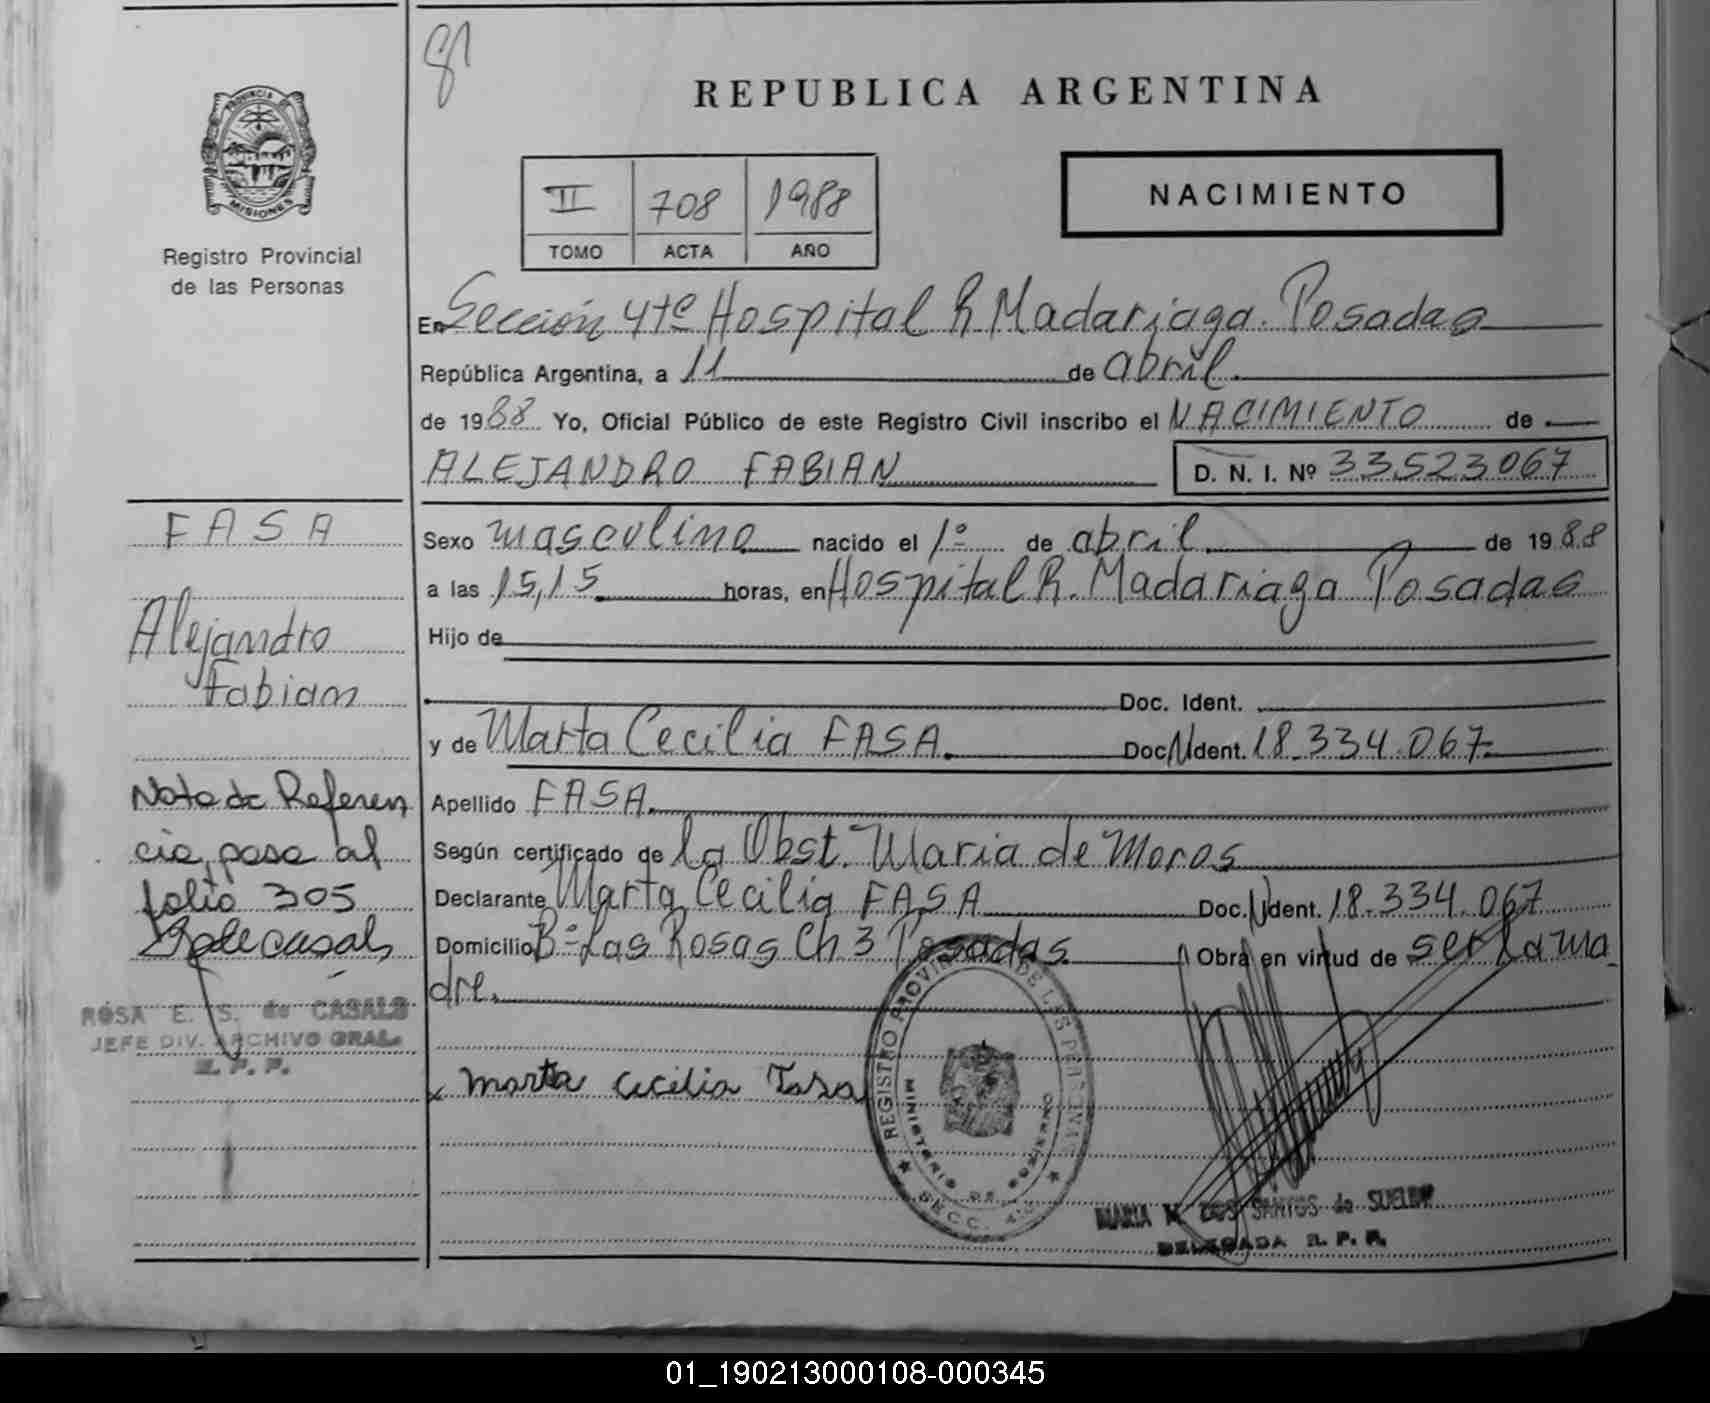 81
PROVINCIA DE
MISIONES
Registro Provincial
de las Personas
REPUBLICA ARGENTINA
II 708 1988
TOMO ACTA AÑO
NACIMIENTO
En Sección 4ta Hospital R. Madariaga. Posadas
República Argentina, a 11 de abril.
de 1988 Yo, Oficial Público de este Registro Civil inscribo el NACIMIENTO de
ALEJANDRO FABIAN D. N. I. Nº 33523067
Sexo masculino nacido el 1º de abril de 1988
a las 15,15 horas, en Hospital R. Madariaga Posadas
Hijo de
Doc. Ident.
y de Marta Cecilia FASA. Doc. N Ident. 18.334.067
Apellido FASA.
Según certificado de la Obst. Maria de Moros
Declarante Marta Cecilia FASA Doc. N Ident. 18.334.067
Domicilio Bº Las Rosas Ch 3 Posadas. Obra en virtud de ser la ma
dre.
x Marta Cecilia Fasa
REGISTRO PROVINCIAL DE LAS PERSONAS
MINISTERIO DE GOBIERNO
SECC. 4ta
MARIA N. DOS SANTOS de SUELDO
DELEGADA R. P. P.
FASA
Alejandro
Fabian
Nota de Referen
cia, pasa al
folio 305
ROSA E. S. de CASALS
JEFE DIV. ARCHIVO GRAL.
R. P. P.
01_190213000108-000345